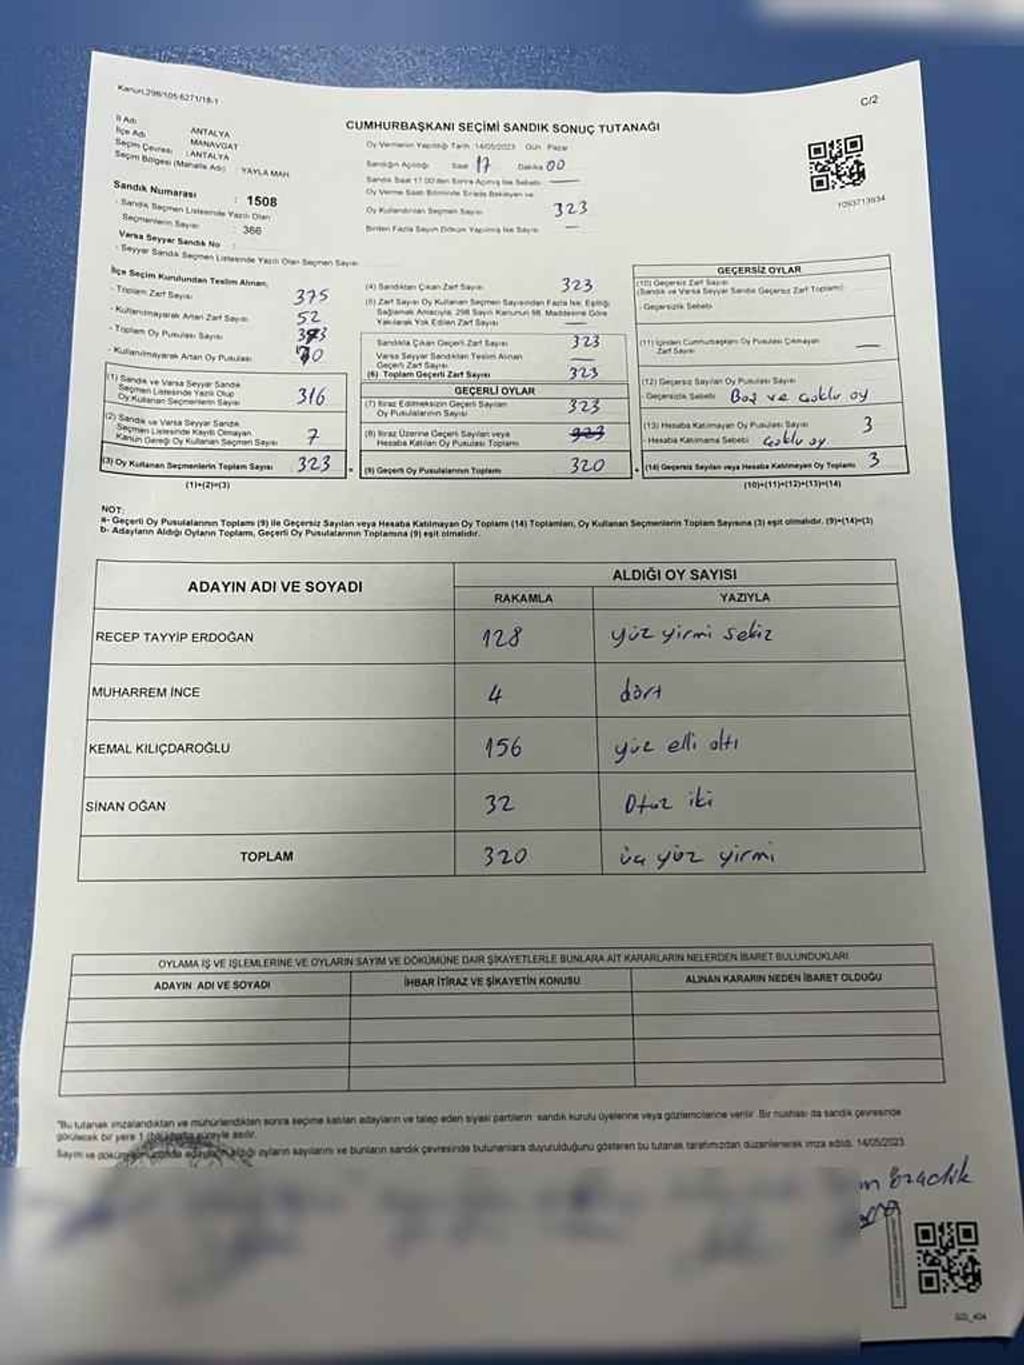 Kanun.298/105-6271/18-1
C/2
CUMHURBAŞKANI SEÇİMİ SANDIK SONUÇ TUTANAĞI
İl Adı : ANTALYA
İlçe Adı : MANAVGAT
Seçim Çevresi : ANTALYA
Seçim Bölgesi (Mahalle Adı) : YAYLA MAH.
Sandık Numarası : 1508
- Sandık Seçmen Listesinde Yazılı Olan
Seçmenlerin Sayısı : 366
Varsa Seyyar Sandık No :
- Seyyar Sandık Seçmen Listesinde Yazılı Olan Seçmen Sayısı :
Oy Vermenin Yapıldığı Tarih 14/05/2023 Gün Pazar
Sandığın Açıldığı Saat 17 Dakika 00
Sandık Saat 17.00'den Sonra Açılmış İse Sebebi —
Oy Verme Saati Bitiminde Sırada Bekleyen ve
Oy Kullandırılan Seçmen Sayısı 323
Birden Fazla Sayım Döküm Yapılmış İse Sayısı —
1093713634
İlçe Seçim Kurulundan Teslim Alınan;
- Toplam Zarf Sayısı 375
- Kullanılmayarak Artan Zarf Sayısı 52
- Toplam Oy Pusulası Sayısı
- Kullanılmayarak Artan Oy Pusulası
(1) Sandık ve Varsa Seyyar Sandık
Seçmen Listesinde Yazılı Olup
Oy Kullanan Seçmenlerin Sayısı 316
(2) Sandık ve Varsa Seyyar Sandık
Seçmen Listesinde Kayıtlı Olmayan,
Kanun Gereği Oy Kullanan Seçmen Sayısı 7
(3) Oy Kullanan Seçmenlerin Toplam Sayısı 323
(1)+(2)=(3)
(4) Sandıktan Çıkan Zarf Sayısı 323
(5) Zarf Sayısı Oy Kullanan Seçmen Sayısından Fazla İse, Eşitliği
Sağlamak Amacıyla, 298 Sayılı Kanunun 98. Maddesine Göre
Yakılarak Yok Edilen Zarf Sayısı —
Sandıkta Çıkan Geçerli Zarf Sayısı 323
Varsa Seyyar Sandıktan Teslim Alınan
Geçerli Zarf Sayısı —
(6) Toplam Geçerli Zarf Sayısı 323
GEÇERLİ OYLAR
(7) İtiraz Edilmeksizin Geçerli Sayılan
Oy Pusulalarının Sayısı 323
(8) İtiraz Üzerine Geçerli Sayılan veya
Hesaba Katılan Oy Pusulası Toplamı 323
(9) Geçerli Oy Pusulalarının Toplamı 320
GEÇERSİZ OYLAR
(10) Geçersiz Zarf Sayısı
(Sandık ve Varsa Seyyar Sandık Geçersiz Zarf Toplamı)
- Geçersizlik Sebebi
(11) İçinden Cumhurbaşkanı Oy Pusulası Çıkmayan
Zarf Sayısı —
(12) Geçersiz Sayılan Oy Pusulası Sayısı
- Geçersizlik Sebebi Boş ve çoklu oy
(13) Hesaba Katılmayan Oy Pusulası Sayısı 3
- Hesaba Katılmama Sebebi çoklu oy
(14) Geçersiz Sayılan veya Hesaba Katılmayan Oy Toplamı 3
(10)+(11)+(12)+(13)=(14)
NOT:
a- Geçerli Oy Pusulalarının Toplamı (9) ile Geçersiz Sayılan veya Hesaba Katılmayan Oy Toplamı (14) Toplamları, Oy Kullanan Seçmenlerin Toplam Sayısına (3) eşit olmalıdır. (9)+(14)=(3)
b- Adayların Aldığı Oyların Toplamı, Geçerli Oy Pusulalarının Toplamına (9) eşit olmalıdır.
ADAYIN ADI VE SOYADI ALDIĞI OY SAYISI
RAKAMLA YAZIYLA
RECEP TAYYİP ERDOĞAN 128 yüz yirmi sekiz
MUHARREM İNCE 4 dört
KEMAL KILIÇDAROĞLU 156 yüz elli altı
SİNAN OĞAN 32 Otuz iki
TOPLAM 320 üç yüz yirmi
OYLAMA İŞ VE İŞLEMLERİNE VE OYLARIN SAYIM VE DÖKÜMÜNE DAİR ŞİKAYETLERLE BUNLARA AİT KARARLARIN NELERDEN İBARET BULUNDUKLARI
ADAYIN ADI VE SOYADI İHBAR İTİRAZ VE ŞİKAYETİN KONUSU ALINAN KARARIN NEDEN İBARET OLDUĞU
"Bu tutanak imzalandıktan ve mühürlendikten sonra seçime katılan adayların ve talep eden siyasi partilerin sandık kurulu üyelerine veya gözlemcilerine verilir. Bir nüshası da sandık çevresinde
görülecek bir yere 1 süreyle asılır.
Sayım ve dökümü aldığı oyların sayılarını ve bunların sandık çevresinde bulunanlara duyurulduğunu gösteren bu tutanak tarafımızdan düzenlenerek imza edildi. 14/05/2023